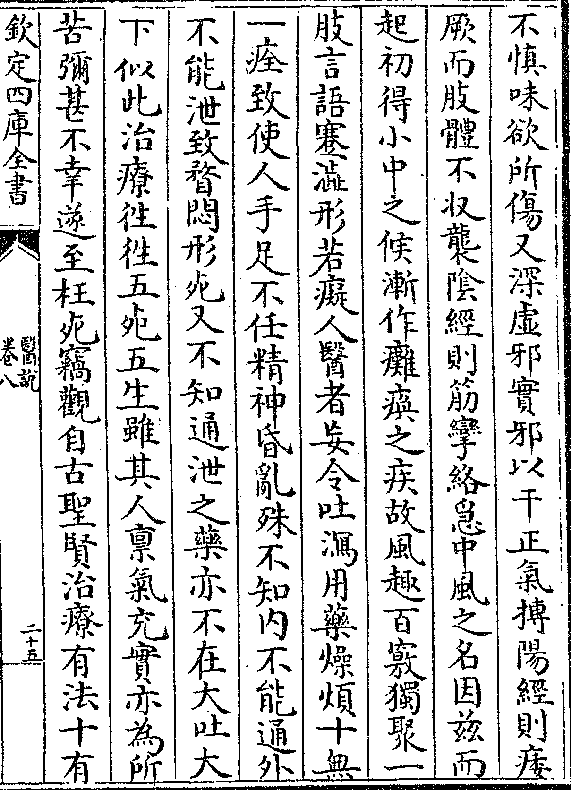 不慎味欲所傷又深虛邪實邪以干正氣搏陽經則痿
厥而肢體不収襲陰經則筋攣絡急中風之名因兹而
起初得小中之候漸作癱瘓之疾故風趣百竅獨聚一
肢言語蹇澁形若癡人醫者妄令吐瀉用藥燥煩十無
一痊致使人手足不任精神昏亂殊不知内不能通外
不能泄致瞀悶形宛又不知通泄之藥亦不在大吐大
下似此治療徃徃五死五生雖其人禀氣充實亦為所
苦彌甚不幸遂至枉死竊觀自古聖賢治療有法十有
欽定四庫全書
醫說
卷八
二十五